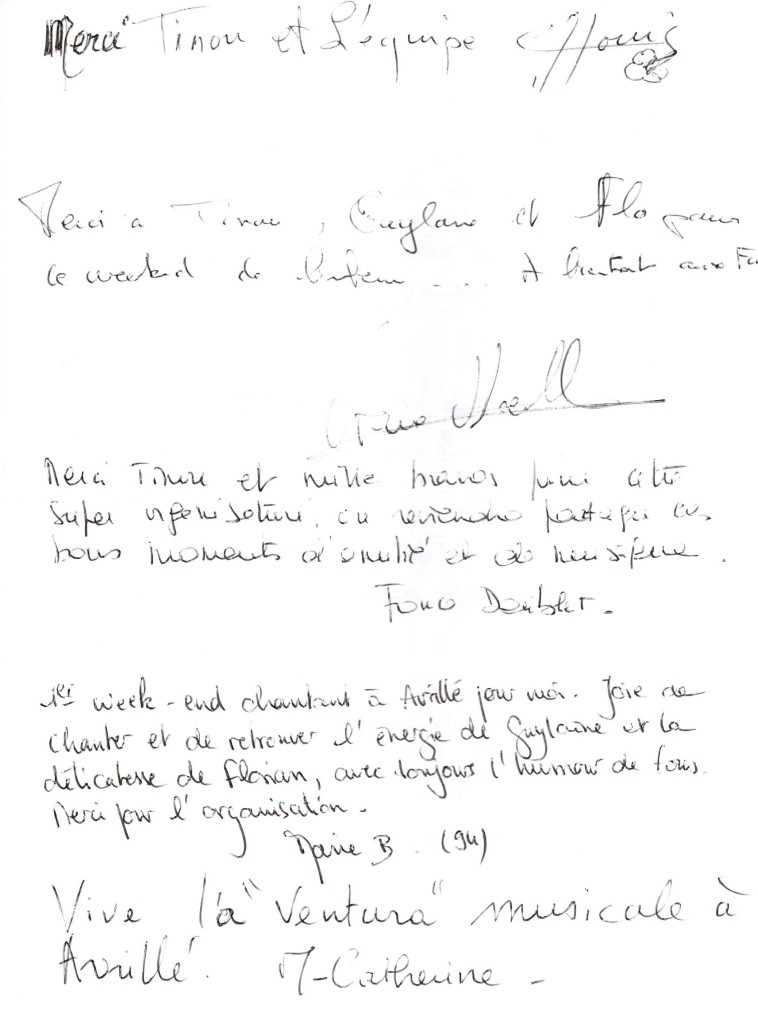 Merci Tinou et L'équipe
Merci a Tinou, Guylane et Flo pour
ce weekend de A bientot aux
Merci Tinou et mille bravos pour cette
super organisation, on reviendra partager ces
bons moments d'amitié et de musique.
1er week-end chantant à Avrillé pour moi. Joie de
chanter et de retrouver l'énergie de Guylaine et la
délicatesse de Florian, avec toujours l'humour de tous.
Merci pour l'organisation.
Marie B. (94)
Vive l'a "Ventura" musicale à
Avrillé. M-Catherine -